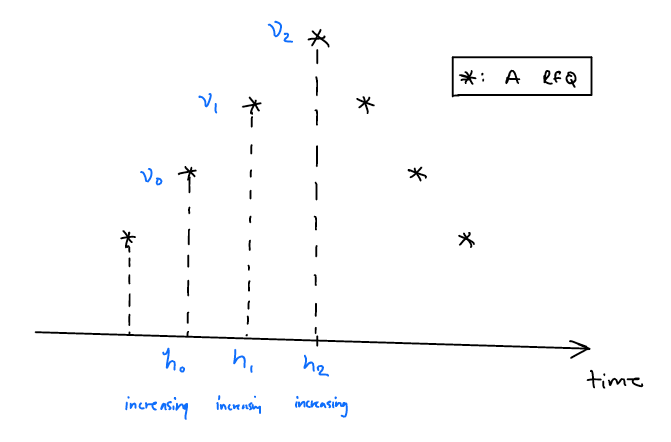 ν₂
*: A RFQ
ν₁
ν₀
h₀ h₁ h₂
time
increasing increasin increasing